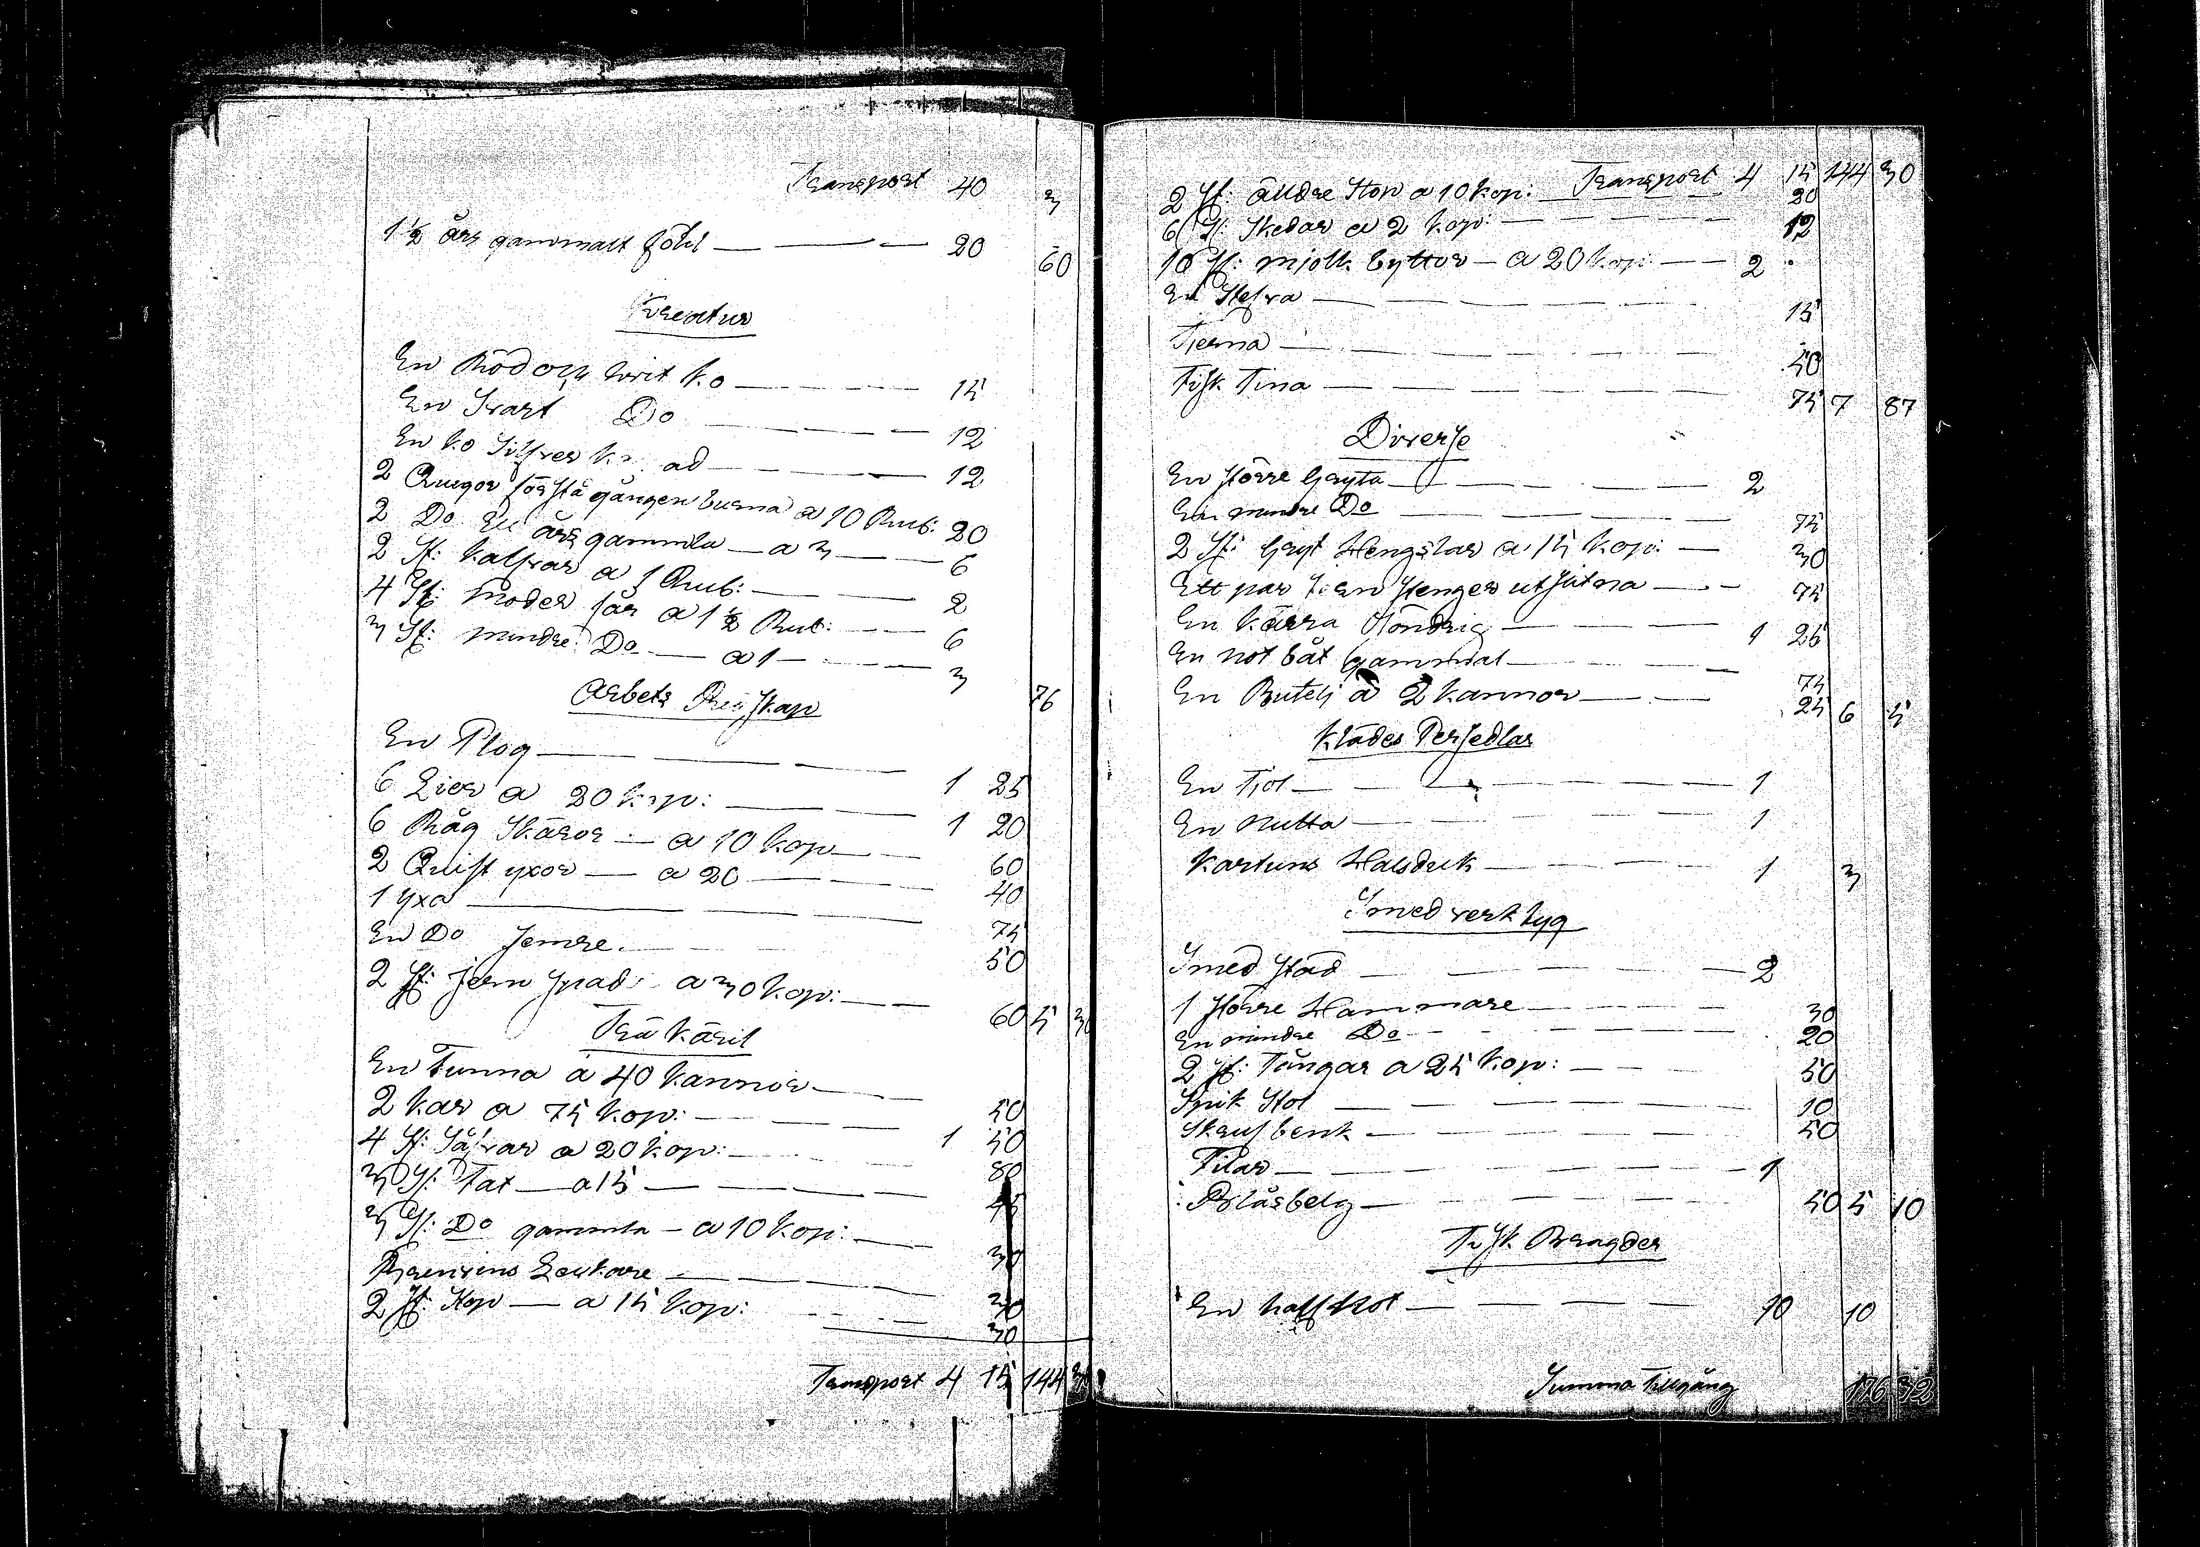 Transport 40 3
1 1/2 års gammalt föhl — — — 20 60
Kreatur
En Röd och hvit ko — — — 15
En Svart Do — — — 12
En ko Silfver — — — 12
2 Quigor första gången burna a 10 Rub: 20
2 Do Ett års gammla — a 3 — 6
2 St: kalfvar a 1 Rub: — — 2
4 St: Moder får a 1 1/2 Rub: — — 6
3 St: mindre Do — a 1 — — 3 76
Arbets Redskap
En Plog — — — 1 25
6 Lier a 20 kop: — — 1 20
6 Råg Skäror — a 10 kop — — 60
2 Quist yxor — a 20 — — 40
1 yxa — — — 75
En Do Semre — — — 50
2 St: jern spad a 30 kop: — — 60 5 30
Trä käril
En Tunna a 40 kannor — — 50
2 kar a 75 kop: — — 1 50
4 St: Såfvar a 20 kop: — — 80
3 St: Fat — a 15 — — — 45
3 St: Do gammla — a 10 kop: — — 30
Brenvins Lenkare — — — 30
2 St: Stop — a 15 kop: — — 30
Transport 4 15 144 30
Transport 4 15 144 30
2 St: äldre Stop a 10 kop: — — 20
6 St: Skedar a 2 kop: — — — 12
10 St: mjölk byttor — a 20 kop: — — 2 .
En Stefva — — — 15
Tjerna — — — 50
Fisk Tina — — — 75 7 87
Diverse
En Större Gryta — — — 2
En mindre Do — — — 75
2 St: Gryt Hengslar a 15 kop: — 30
Ett par jern Stenger utslitna — — 75
En kärra Söndrig — — — 1 25
En not båt Gammal — — — 75
En Butelj a 2 kannor — — 25 6 5
Klädes Persedlar
En Tjol — — — 1
En Mutta — — — 1
Kartuns Halsduk — — — 1 3
Smed verktyg
Smed Städ — — — 2
1 Större Hammare — — — 30
En mindre Do — — — 20
2 St: Tångar a 25 kop: — — 50
Spik Stol — — — 10
Skruf benk — — — 50
Filar — — — 1
Blåsbelg — — — 50 5 10
Fisk Bragder
En half Not — — — 10 10
Summa Tillgång 176 32